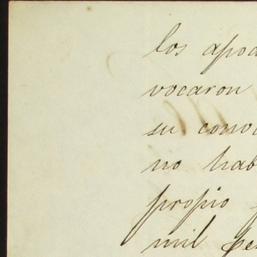 los apod
vocaron
su convoc
no hab
propio
mil